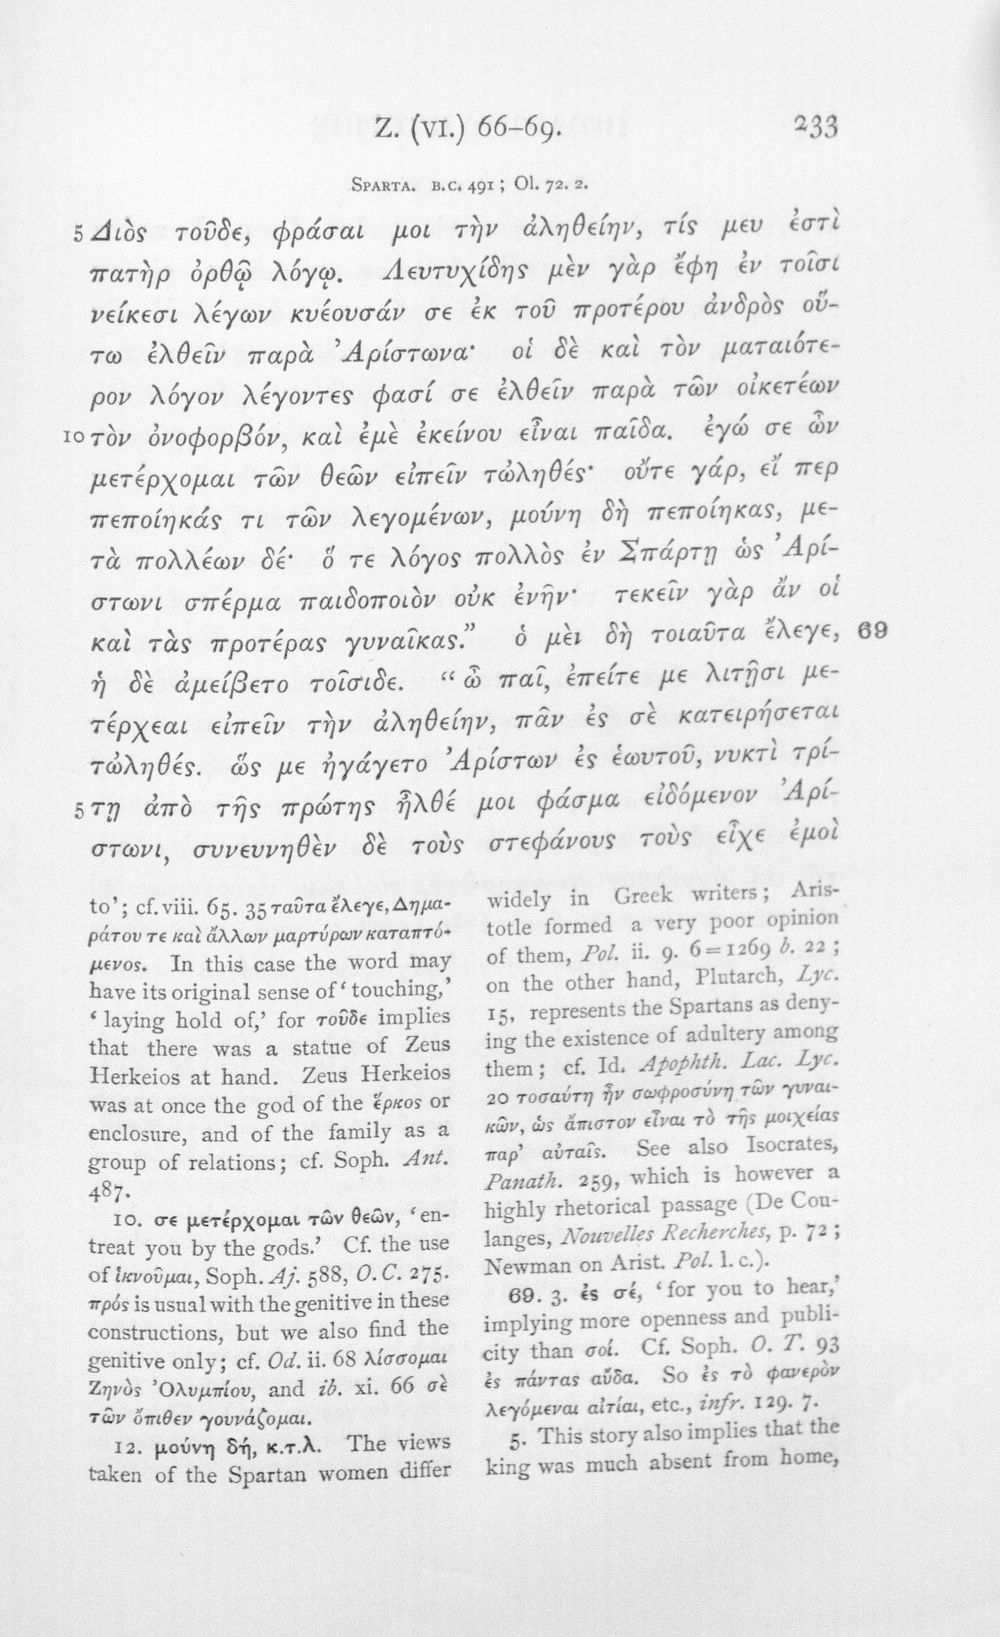 Z. (VI.) 66–69. 233
SPARTA. B.C. 491 ; Ol. 72. 2.
5 Διὸς τοῦδε, φράσαι μοι τὴν ἀληθείην, τίς μευ ἐστὶ
πατὴρ ὀρθῷ λόγῳ. Λευτυχίδης μὲν γὰρ ἔφη ἐν τοῖσι
νείκεσι λέγων κυέουσάν σε ἐκ τοῦ προτέρου ἀνδρὸς οὕ-
τω ἐλθεῖν παρὰ Ἀρίστωνα· οἱ δὲ καὶ τὸν ματαιότε-
ρον λόγον λέγοντες φασί σε ἐλθεῖν παρὰ τῶν οἰκετέων
10 τὸν ὀνοφορβόν, καὶ ἐμὲ ἐκείνου εἶναι παῖδα. ἐγώ σε ὦν
μετέρχομαι τῶν θεῶν εἰπεῖν τὠληθές· οὔτε γάρ, εἴ περ
πεποίηκάς τι τῶν λεγομένων, μούνη δὴ πεποίηκας, με-
τὰ πολλέων δέ· ὅ τε λόγος πολλὸς ἐν Σπάρτῃ ὡς Ἀρί-
στωνι σπέρμα παιδοποιὸν οὐκ ἐνῆν· τεκεῖν γὰρ ἄν οἱ
καὶ τὰς προτέρας γυναῖκας.” ὁ μὲν δὴ τοιαῦτα ἔλεγε, 69
ἡ δὲ ἀμείβετο τοῖσιδε. “ὦ παῖ, ἐπείτε με λιτῇσι με-
τέρχεαι εἰπεῖν τὴν ἀληθείην, πᾶν ἐς σὲ κατειρήσεται
τὠληθές. ὥς με ἠγάγετο Ἀρίστων ἐς ἑωυτοῦ, νυκτὶ τρί-
5 τῃ ἀπὸ τῆς πρώτης ἦλθέ μοι φάσμα εἰδόμενον Ἀρί-
στωνι, συνευνηθὲν δὲ τοὺς στεφάνους τοὺς εἶχε ἐμοὶ
to’; cf. viii. 65. 35 ταῦτα ἔλεγε, Δημα-
ράτου τε καὶ ἄλλων μαρτύρων καταπτό-
μενος. In this case the word may
have its original sense of ‘touching,’
‘laying hold of,’ for τοῦδε implies
that there was a statue of Zeus
Herkeios at hand. Zeus Herkeios
was at once the god of the ἕρκος or
enclosure, and of the family as a
group of relations; cf. Soph. Ant.
487.
10. σε μετέρχομαι τῶν θεῶν, ‘en-
treat you by the gods.’ Cf. the use
of ἱκνοῦμαι, Soph. Aj. 588, O. C. 275.
πρός is usual with the genitive in these
constructions, but we also find the
genitive only; cf. Od. ii. 68 λίσσομαι
Ζηνὸς Ὀλυμπίου, and ib. xi. 66 σὲ
τῶν ὄπιθεν γουνάζομαι.
12. μούνη δή, κ.τ.λ. The views
taken of the Spartan women differ
widely in Greek writers; Aris-
totle formed a very poor opinion
of them, Pol. ii. 9. 6=1269 b. 22 ;
on the other hand, Plutarch, Lyc.
15, represents the Spartans as deny-
ing the existence of adultery among
them; cf. Id. Apophth. Lac. Lyc.
20 τοσαύτη ἦν σωφροσύνη τῶν γυναι-
κῶν, ὡς ἄπιστον εἶναι τὸ τῆς μοιχείας
παρ’ αὐταῖς. See also Isocrates,
Panath. 259, which is however a
highly rhetorical passage (De Cou-
langes, Nouvelles Recherches, p. 72 ;
Newman on Arist. Pol. l. c.).
69. 3. ἐς σέ, ‘for you to hear,’
implying more openness and publi-
city than σοί. Cf. Soph. O. T. 93
ἐς πάντας αὔδα. So ἐς τὸ φανερὸν
λεγόμεναι αἰτίαι, etc., infr. 129. 7.
5. This story also implies that the
king was much absent from home,